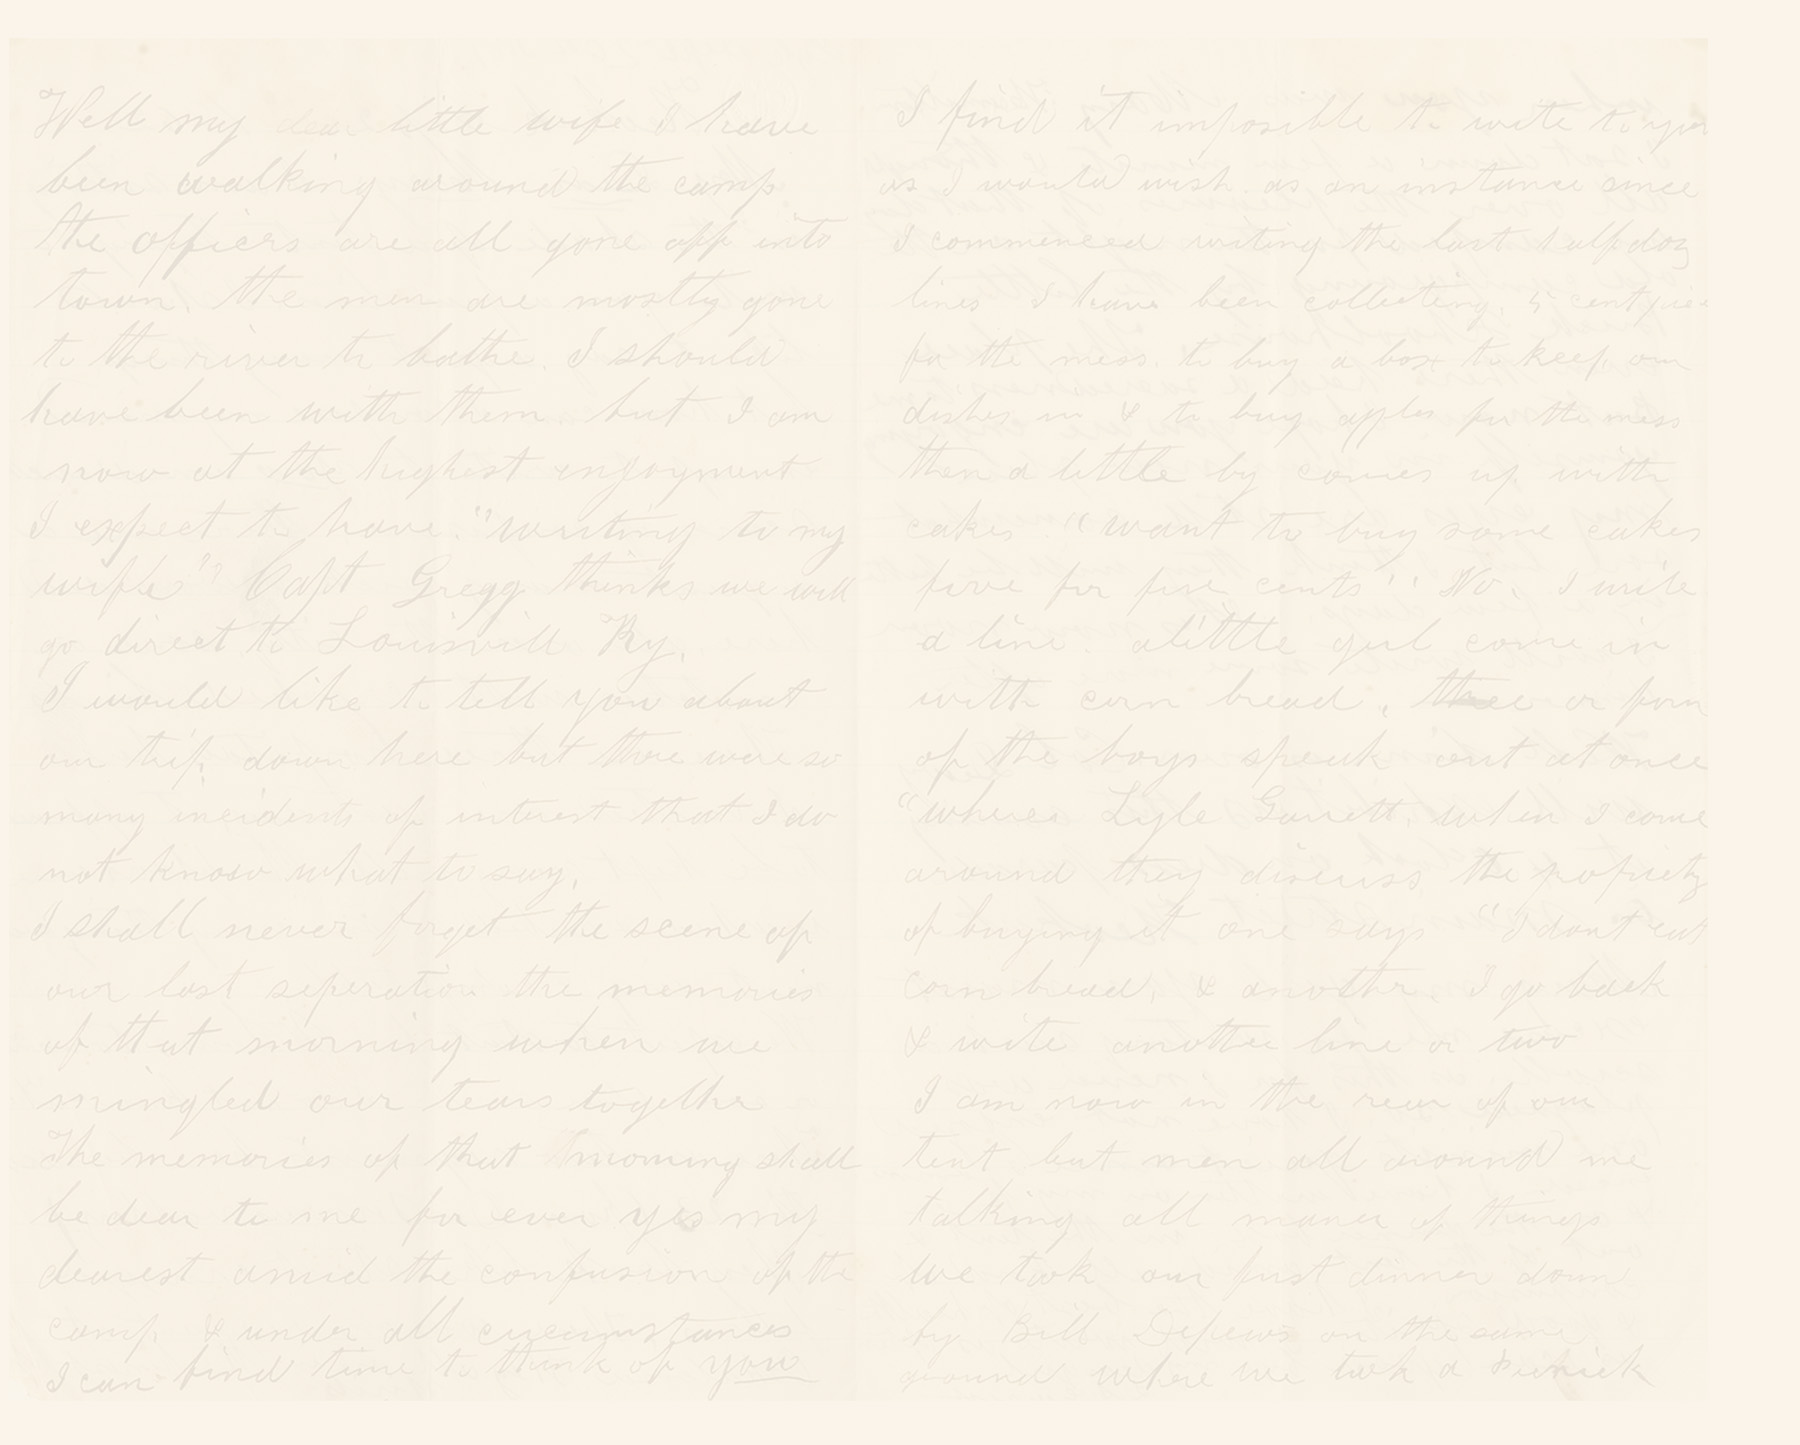 Well my dear little wife I have
been walking around the camp
the officers are all gone off into
town. the men are mostly gone
to the river to bathe. I should
have been with them but I am
now at the highest enjoyment
I expect to have. "writing to my
wife" Capt Gregg thinks we will
go direct to Louisvill Ky.
I would like to tell you about
our trip down here but there were so
many incidents of interest that I do
not know what to say.
I shall never forget the scene of
our last seperation the memories
of that morning when we
mingled our tears together
The memories of that morning shall
be dear to me for ever yes my
dearest amid the confusion of the
camp & under all circumstances
I can find time to think of you
I find it imposible to write to you
as I would wish. as an instance since
I commenced writing the last half doz
lines I have been collecting. 5 cent piec
for the mess. to buy a box to keep our
dishes in & to buy apples for the mess
then a little by comes up with
cakes. "want to buy some cakes
five for five cents" No. I write
a line. a little girl come in
with corn bread. three or four
of the boys speak out at once
"wheres Lyle Garrett. when I come
around they discuss the propriety
of buying it one says "I dont eat
corn bread. & another. I go back
& write another line or two
I am now in the rear of our
tent but men all around me
talking all maner of things
We took our first dinner down
by Bill Depews on the same
ground where we took a picnick